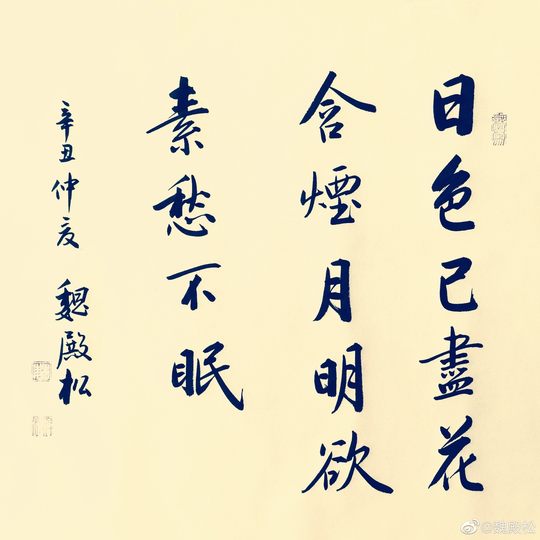 日色已盡花
含煙月明欲
素愁不眠
辛丑仲夏 魏殿松
@魏殿松